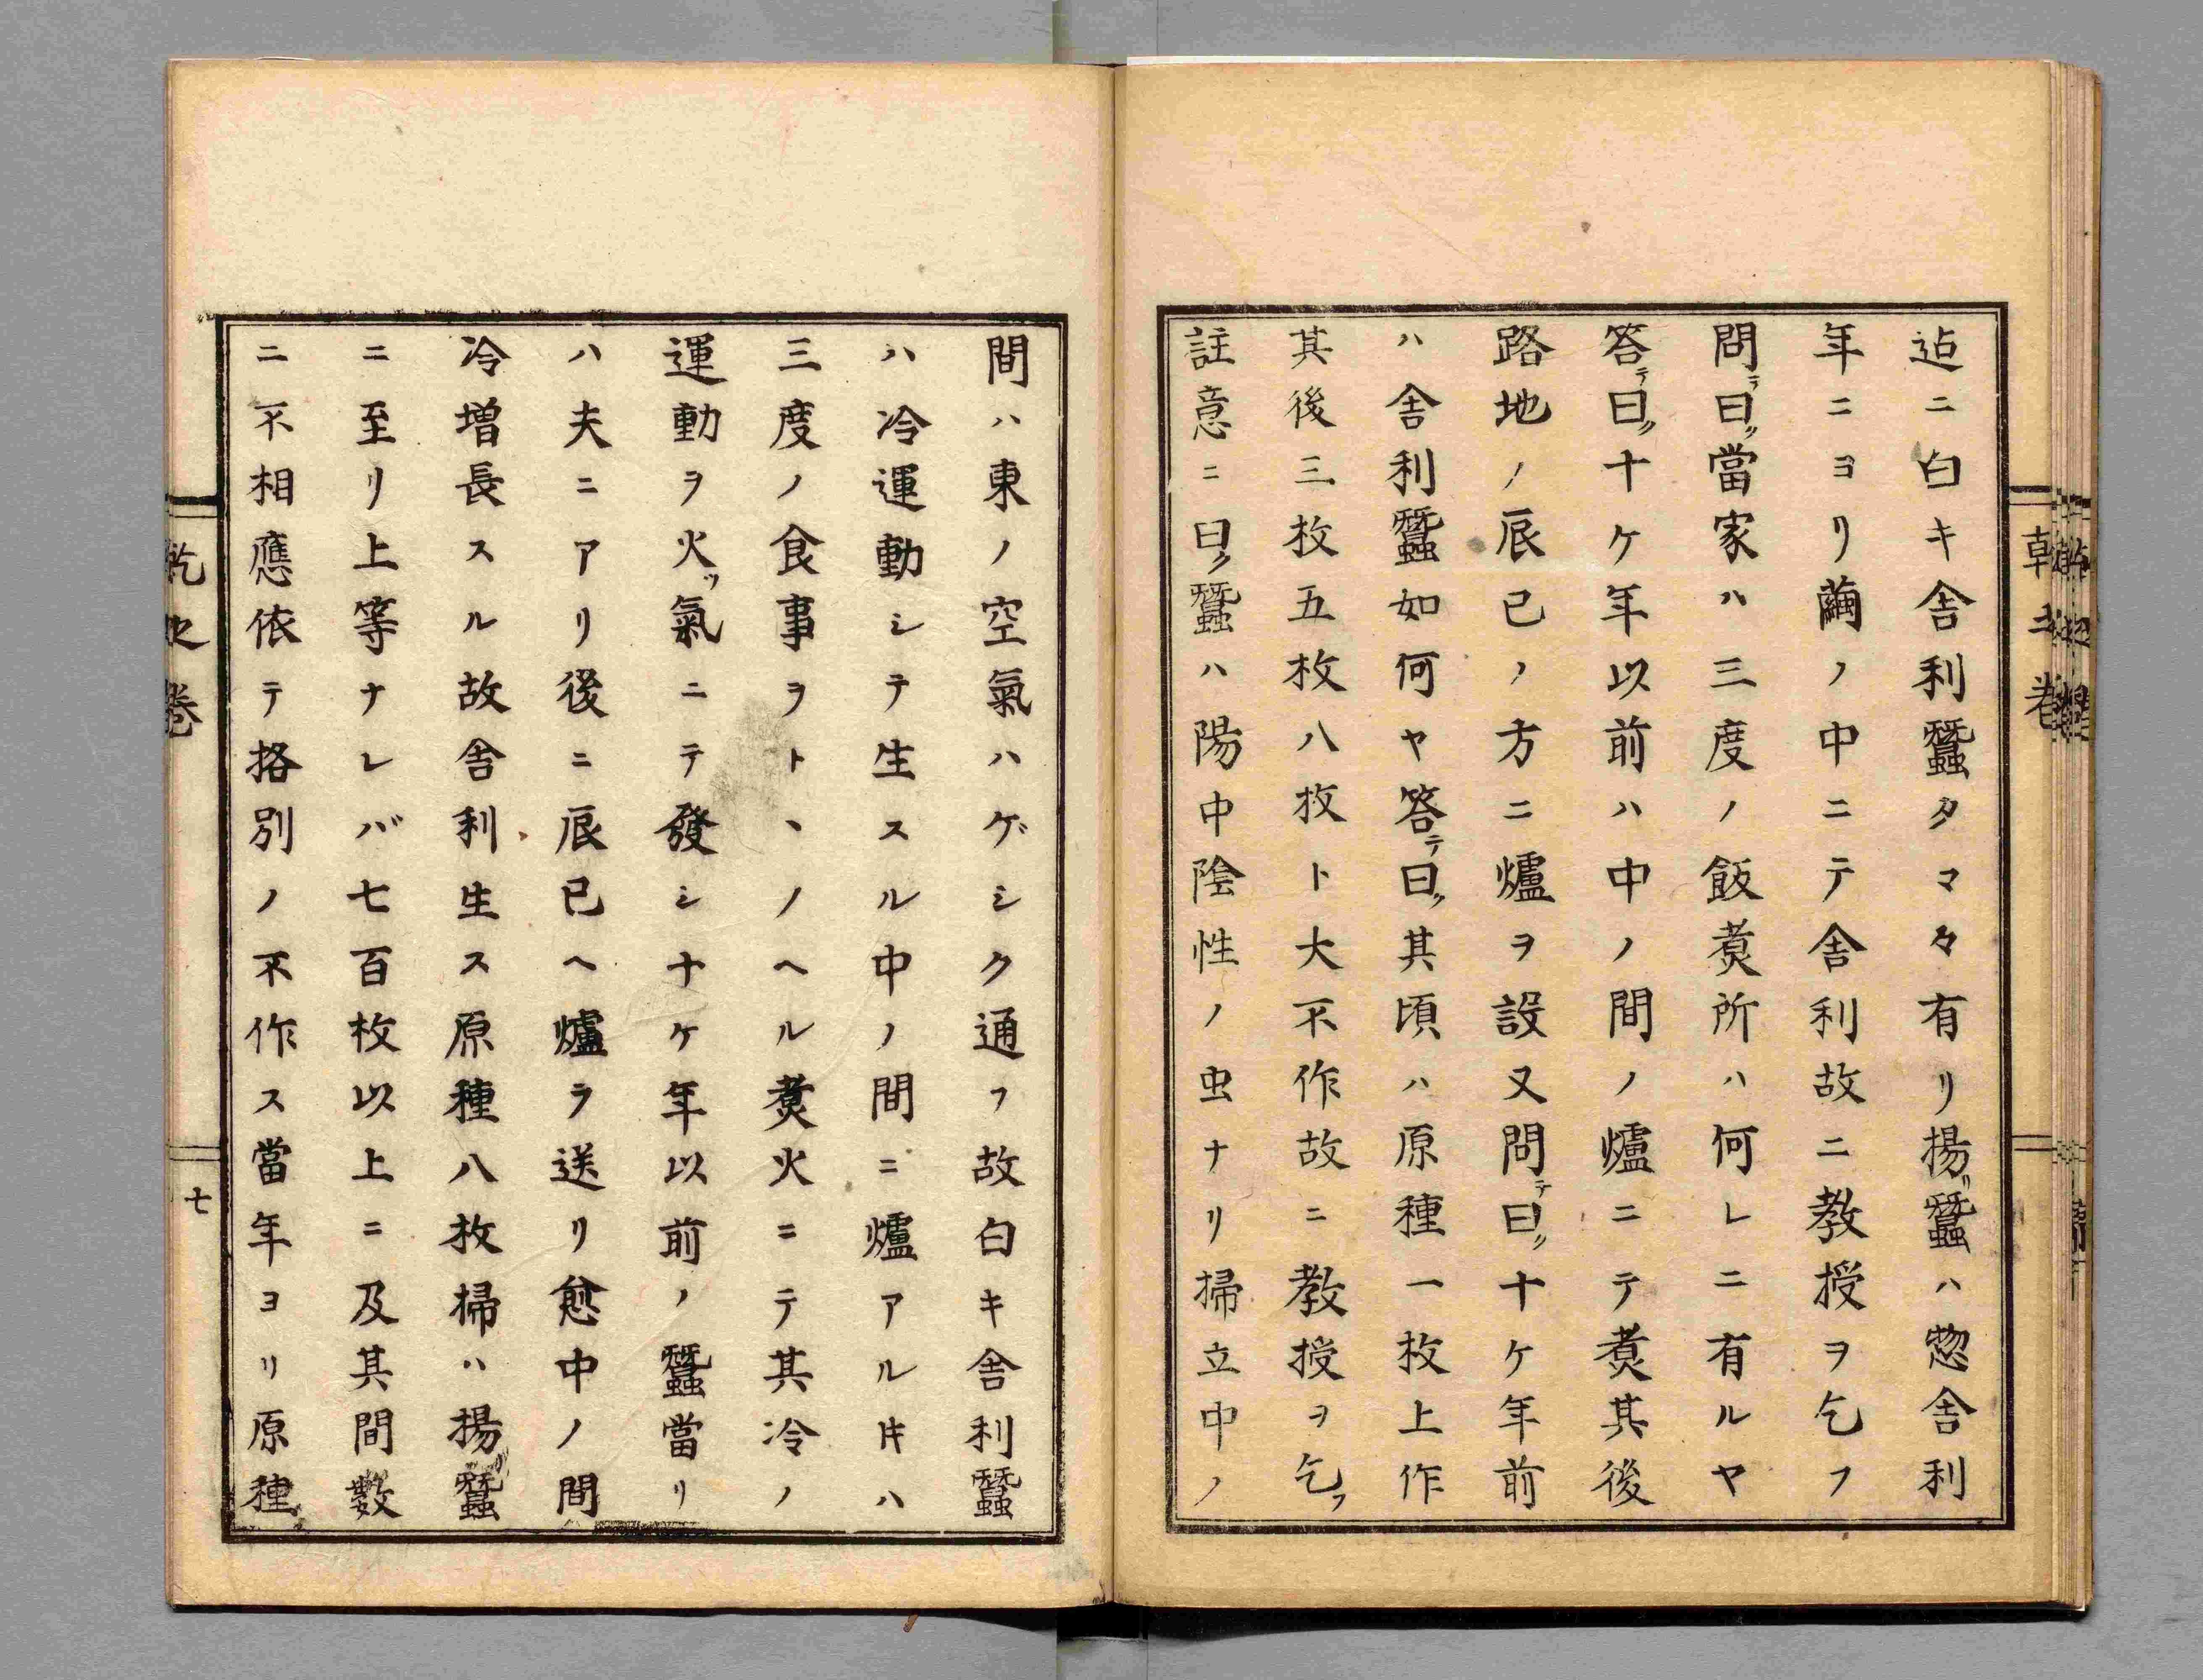 迠ニ白キ舎利蠶タマ々有リ揚リ蠶ハ惣舎利
年ニヨリ繭ノ中ニテ舎利故ニ教授ヲ乞フ
問テ曰ク當家ハ三度ノ飯煑所ハ何レニ有ルヤ
答テ曰ク十ケ年以前ハ中ノ間ノ爐ニテ煑其後
路地ノ辰巳ノ方ニ爐ヲ設又問テ曰ク十ケ年前
ハ舎利蠶如何ヤ答テ曰ク其頃ハ原種一枚上作
其後三枚五枚八枚ト大不作故ニ教授ヲ乞フ
註意ニ曰ク蠶ハ陽中陰性ノ虫ナリ掃立中ノ
間ハ東ノ空氣ハゲシク通フ故白キ舎利蠶
ハ冷運動シテ生スル中ノ間ニ爐アル𪜈ハ
三度ノ食事ヲトヽノヘル煑火ニテ其冷ノ
運動ヲ火ツ氣ニテ發シナケ年以前ノ蠶當リ
ハ夫ニアリ後ニ辰巳ヘ爐ラ送リ愈中ノ間
冷増長スル故舎利生ス原種八枚掃ハ揚リ蠶
ニ至リ上等ナレバ七百枚以上ニ及其間數
ニ不相應依テ挌別ノ不作ス當年ヨリ原種
乾之巻
七